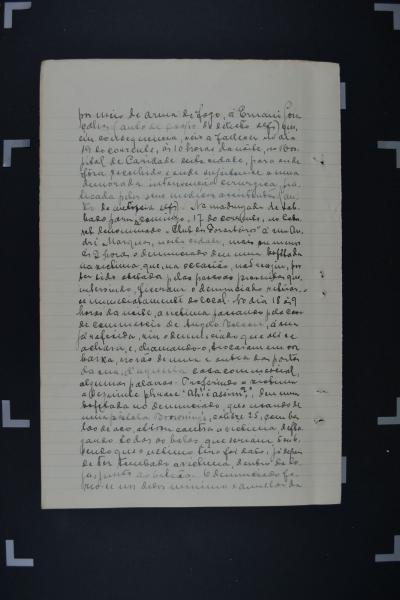 por meio de arma de fogo, á Ernani Gon
çalves (auto de corpo de delicto de fs) que,
em consequencia, veio a fallecer no dia
19 do corrente, ás 10 horas da noite, no Hos
pital de Caridade desta cidade, para onde
fôra recolhido e onde se submetteu a uma
demorada intervenção cirurgica pra
ticada pelos seus medicos assistentes (au
to de autopsia de fs). Na madrugada de sab
bado para domingo, 17 do corrente, no caba
ret denominado "Club dos Democratas" á rua An
dré Marques, nesta cidade, mais ou menos
ás 2 horas o denunciado deu uma bofetada
na victima que, na occasião, não reagiu, por
ter sido obstada pelas pessoas presentes que,
intervindo, fizeram o denunciado retirar-
se immediatamente do local. No dia 18 ás 9
horas da noite, a victima passando pela casa
de commercio de Angelo
já referida, viu o denunciado que ali se
achava e, chamando-o, trocaram em voz
baixa, na vão de uma e outra das portas
da rua, d'aquella casa commercial,
algumas palavras. Proferindo a victima
a seguinte phrase "Ah! é assim?", deu uma
bofetada no denunciado, que usando de
uma pistola Browning, calibre 25, com ba
las de aço, atirou contra a victima, deflag
rando todas as balas que eram 5, sa
bendo que o ultimo tiro foi dado, já depois
de ter tombado a victima, dentro da lo
ja, junto ao balcão. O denunciado fe
riu-se nos dedos minimo e annullar da